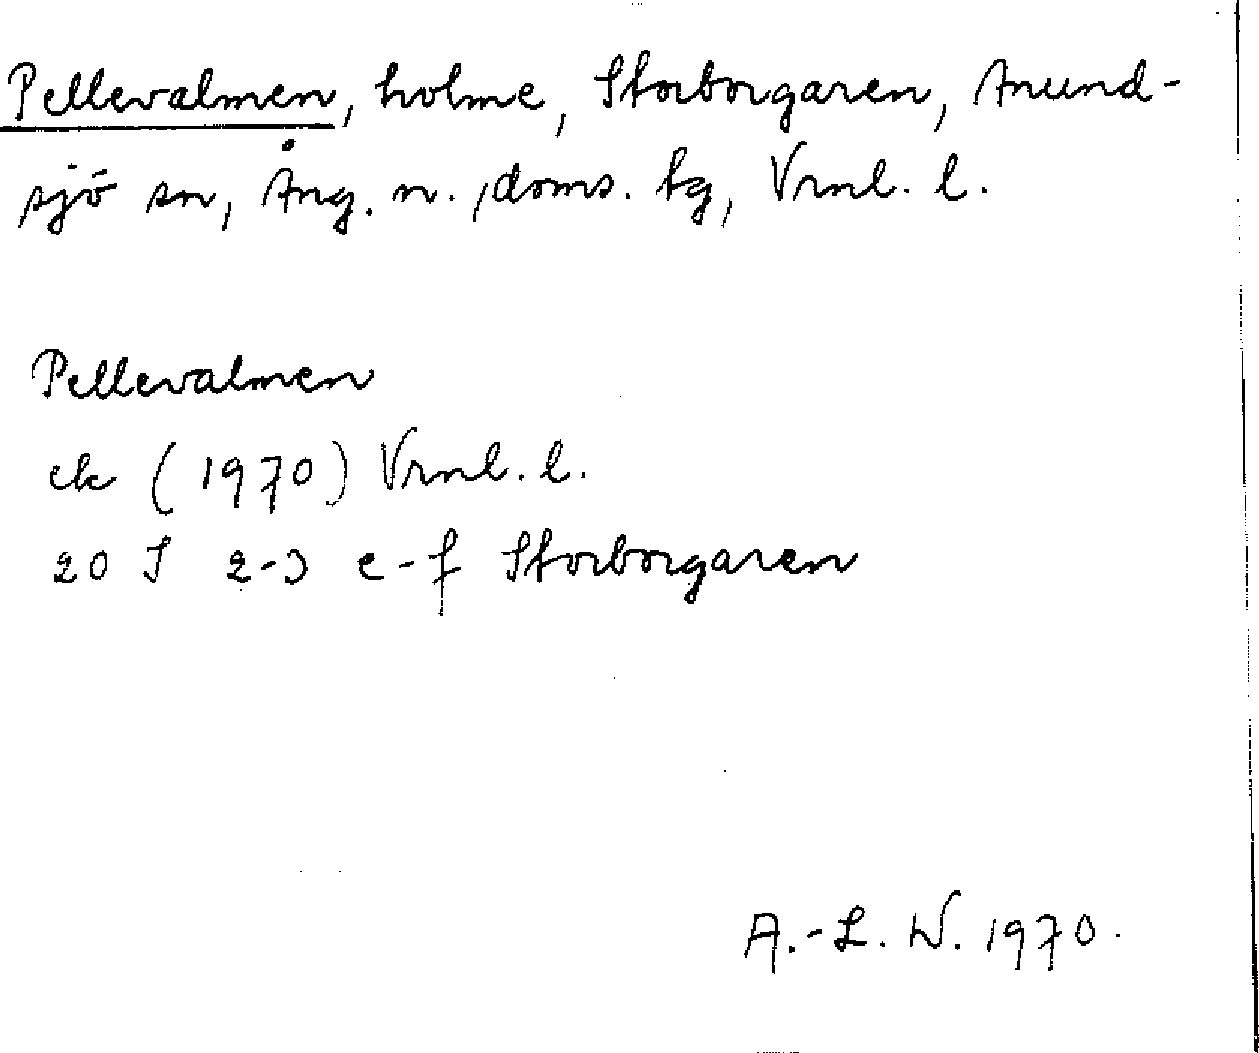 Pellevalmen, holme, Storborgaren, Anund-
sjö sn, Ång. n., doms. tg, Vrnl. l.
Pellevalmen
ek (1970) Vrnl. l.
20 J 2-3 e-f Storborgaren
A.-L. W. 1970.